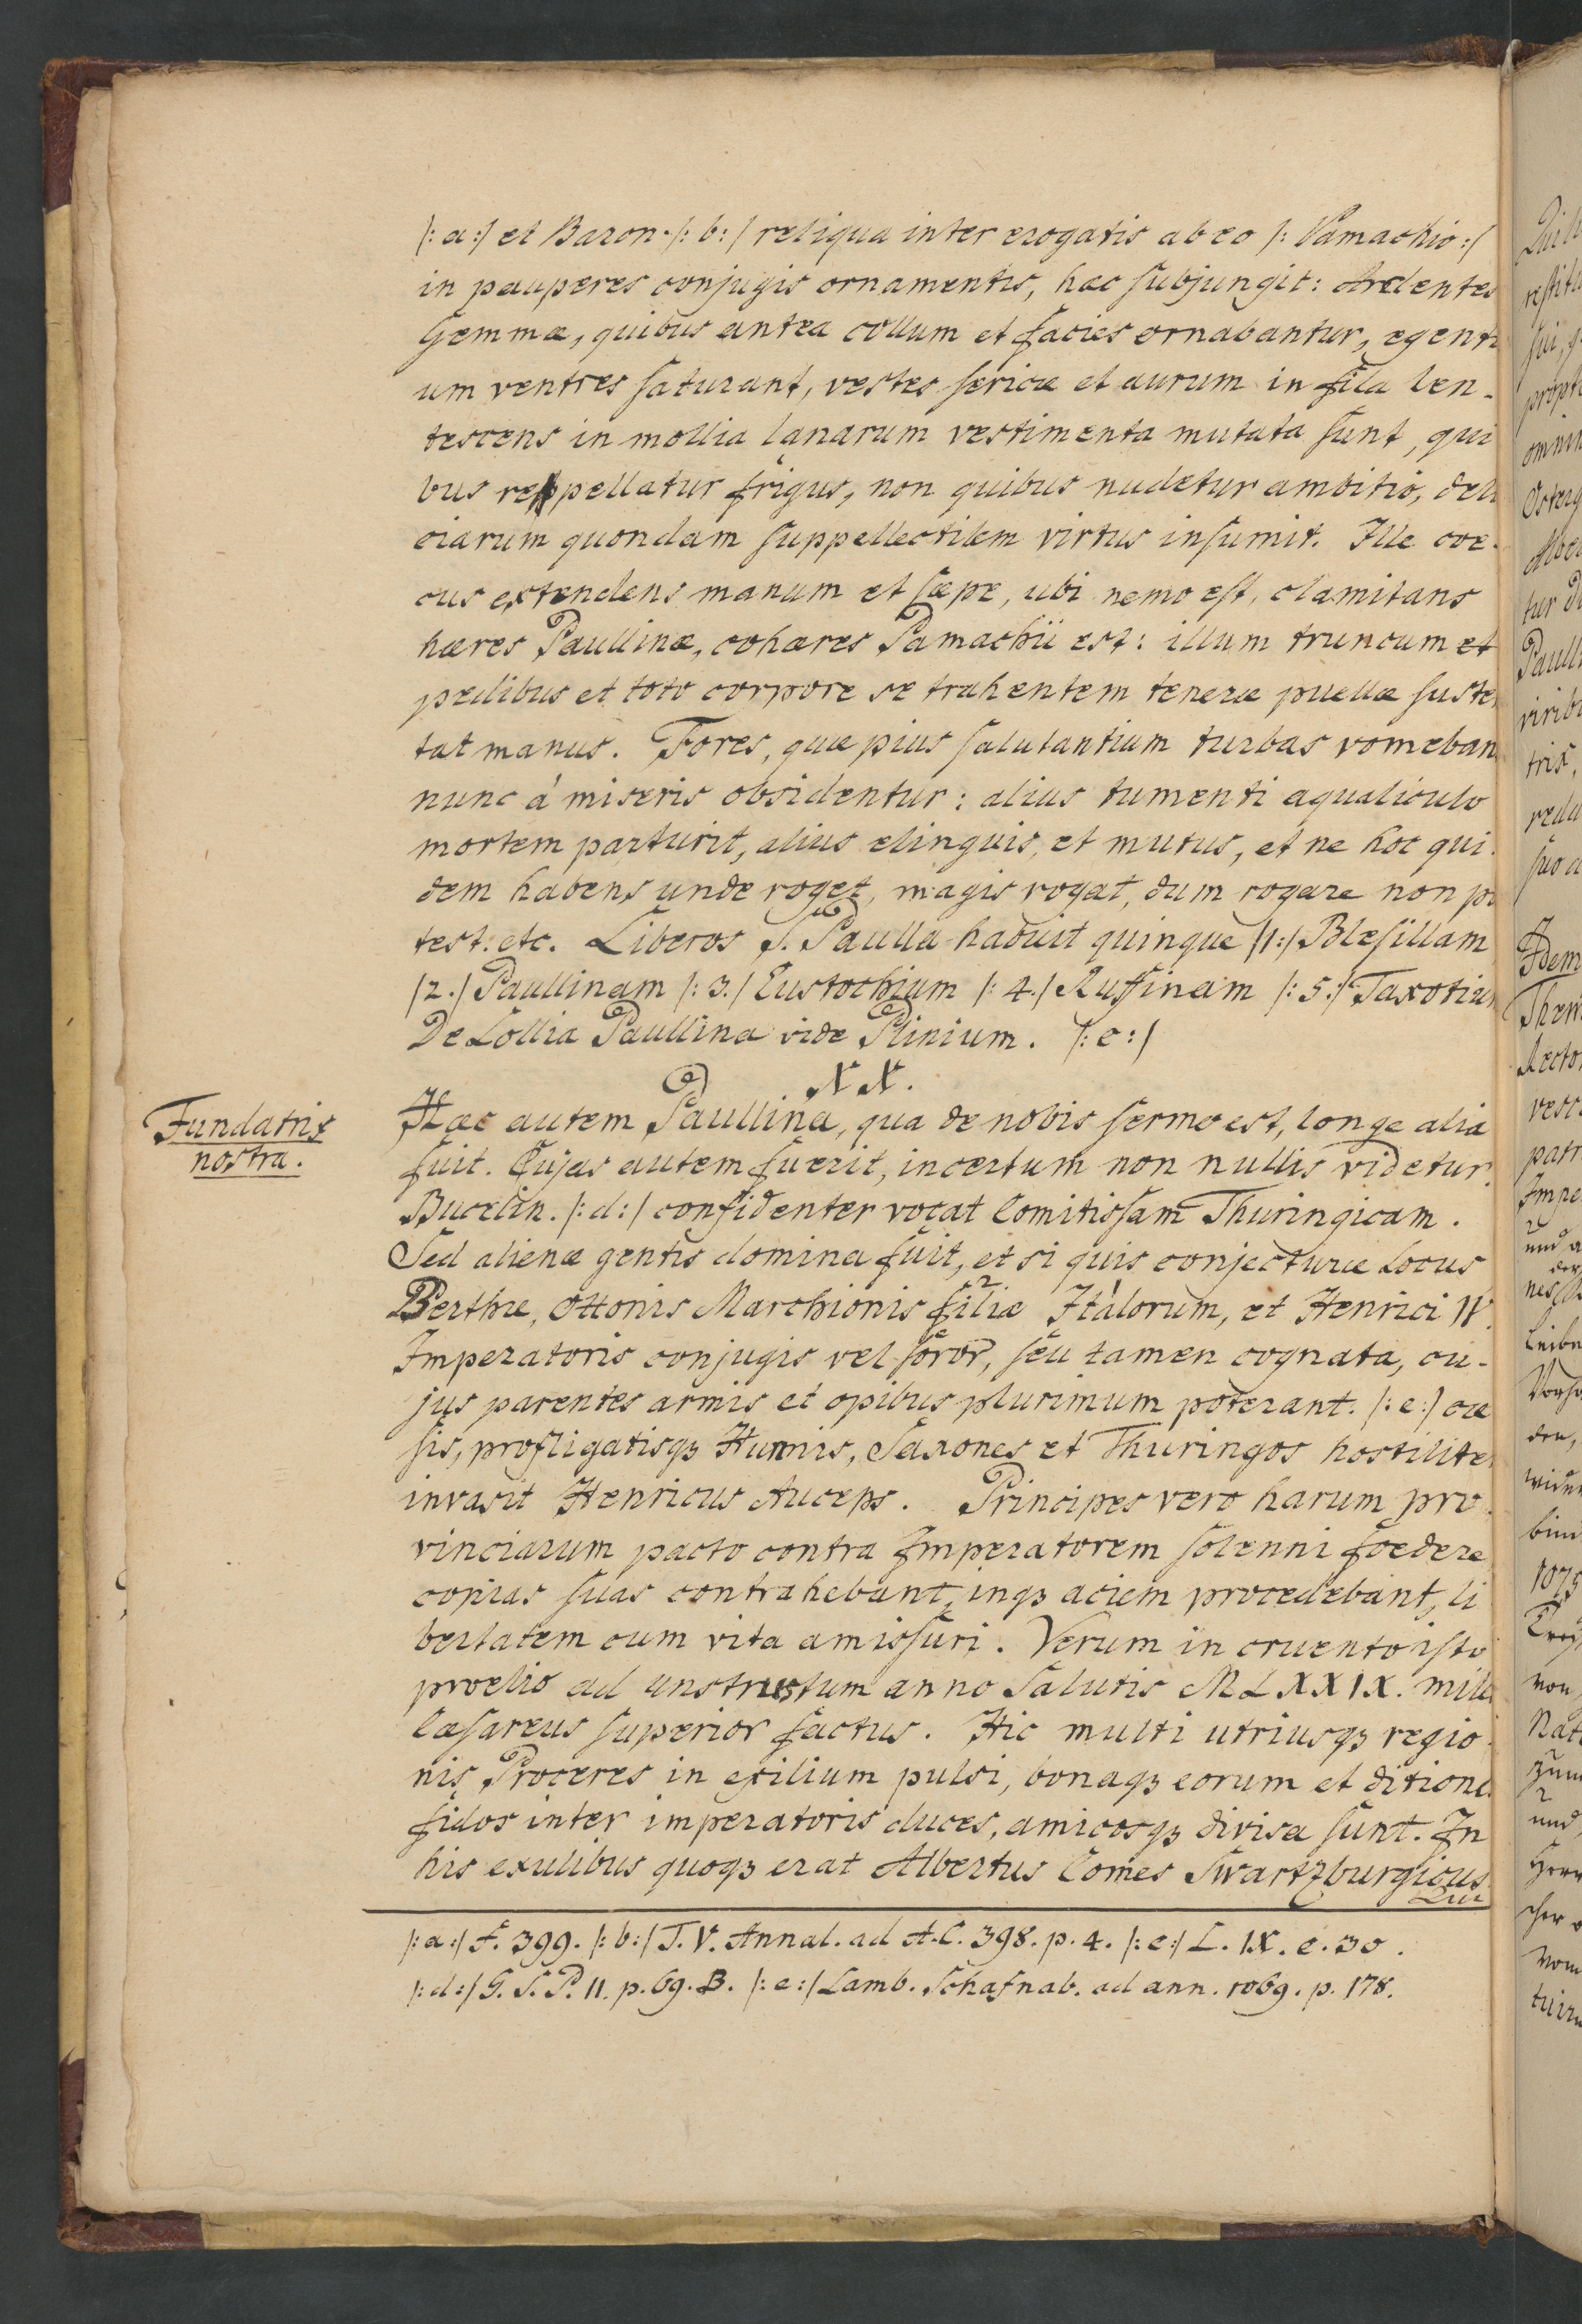 /: a :/ et Baron. /: b: / reliqua inter erogatis ab eo /: Pamachio :/
in pauperes conjugis ornamentis, hæc subjungit: Ardentes
Gemmæ, quibus antea collum et facies ornabantur, egenti
um ventres saturant, vestes sericæ et aurum in fila len-
tescens in mollia lanarum vestimenta mutata sunt, qui
bus reppellatur frigus, non quibus nudetur ambitio, deli
ciarum quondam suppellectilem virtus insumit. Ille coe-
cus extendens manum et sæpe, ubi nemo est, clamitans
hæres Paullinæ, cohæres Pamachii est: illum truncum et
pedibus et toto corpore se trahentem teneræ puellæ susten
tat manus. Fores, quæ pius salutantium turbas vomeban
nunc á miseris obsidentur: alius tumenti aqualiculo
mortem parturit, alius elinguis, et mutus, et ne hoc qui.
dem habens unde roget, magis rogat, dum rogare non po
test. etc. Liberos S. Paulla habuit quinque /1:/ Blesillam
/2./ Paullinam /: 3./ Eustochium /: 4./ Ruffinam /: 5:/ Taxotium
De Lollia Paullina vide Plinium. /: c :/
XX.
Fundatrix
nostra.
Hæc autem Paullina, qua de nobis sermo est, longe alia
fuit. Cujas autem fuerit, incertum non nullis videtur.
Bucelin. /: d: / confidenter vocat Comitissam Thuringicam.
Sed alienæ gentis domina fuit, et si quis conjecturæ Locus
Berthæ, Ottonis Marchionis filiæ Italorum, et Henrici IV.
Imperatoris conjugis vel soror, seu tamen cognata, cu-
jus parentes armis et opibus plurimum poterant. /: e :/ cæ
sis, profligatisqʒ Hunnis, Saxones et Thuringos hostilite
invasit Henricus Auceps. Principes vero harum pro
vinciarum pacto contra Imperatorem solenni foedere
copias suas contrahebant, inqʒ aciem procedebant, li
bertatem cum vita amissuri. Verum in cruento isto
proelio ad unstrustum anno Salutis MLXXIX. mile
Cæsareus superior factus. Hic multi utriusqʒ regio
nis Proceres in exilium pulsi, bonaqʒ eorum et ditione
fidos inter imperatoris duces, amicosqʒ divisa sunt. In
his exulibus quoqʒ erat Albertus Comes Swartzburgicus
Qui
/: a :/ F. 399. /: b: / T. V. Annal. ad A. C. 398. p. 4. /: c :/ L. IX. c. 30.
/: d :/ G. S. P. II. p. 69. B. /: e :/ Lamb. Schafnab. ad ann. 1069. p. 178.